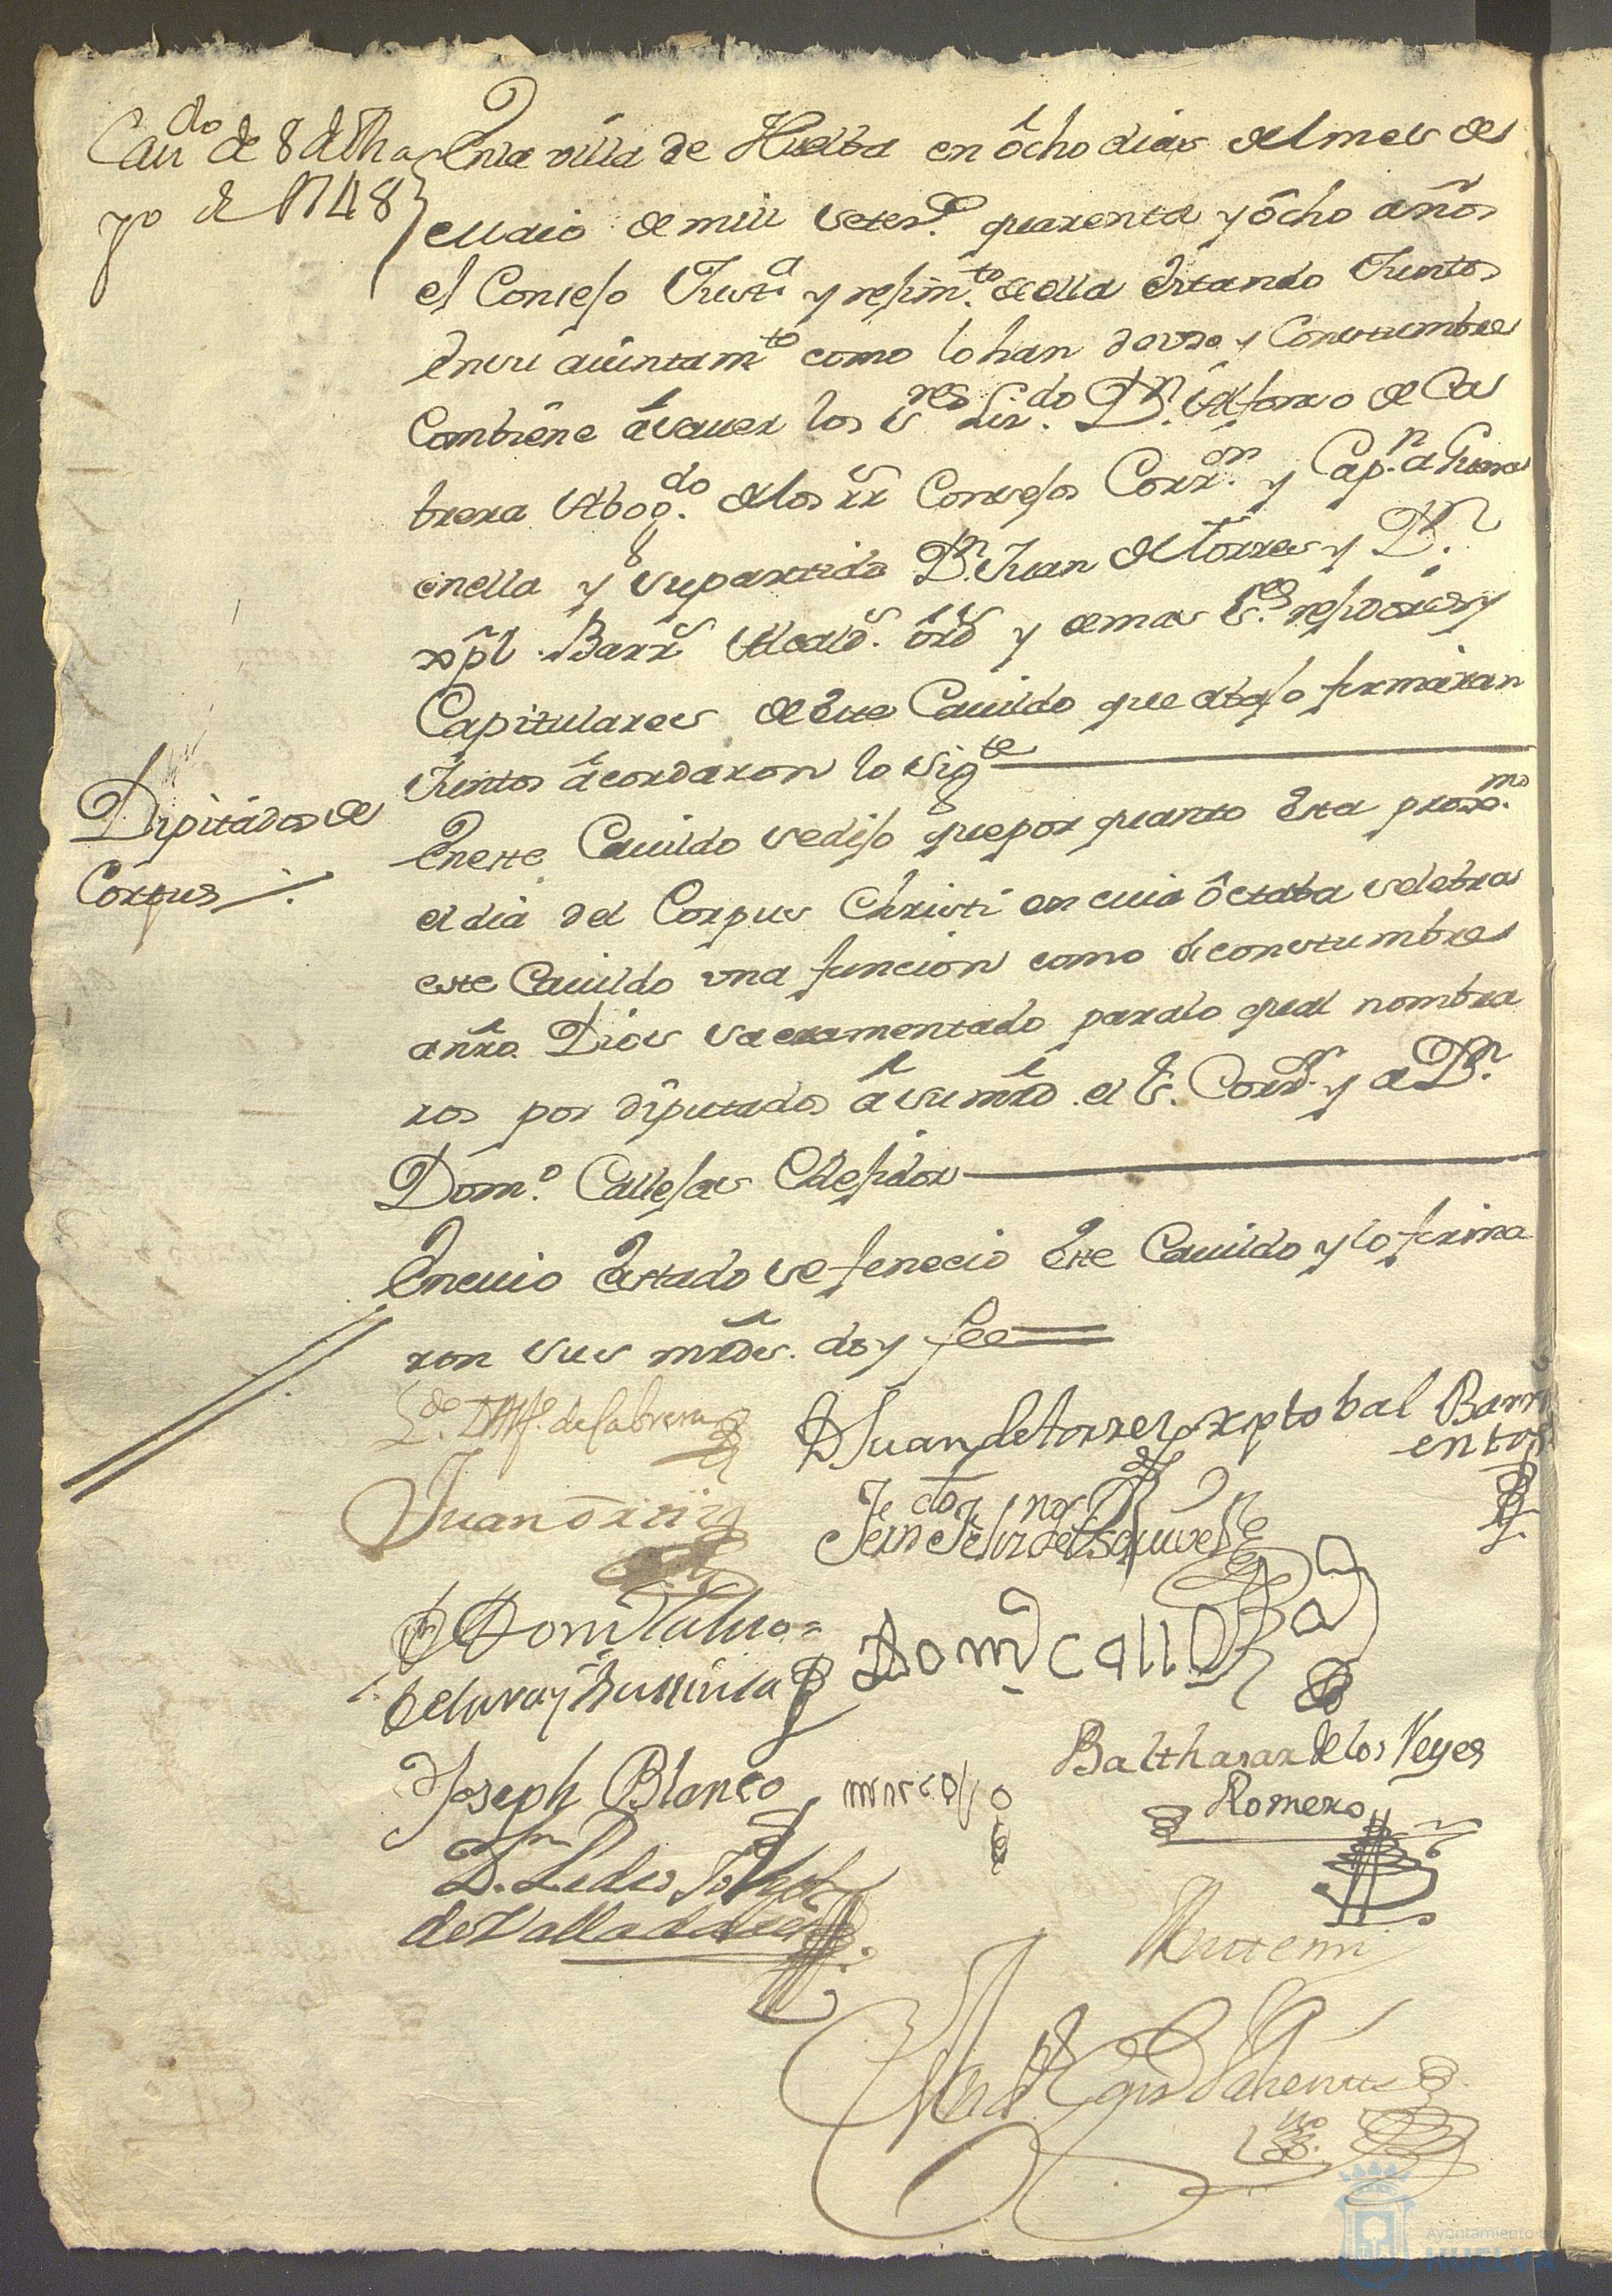 Cau.do de 8 de Ma
yo de 1748
En la villa de Huelba en ôcho dias del mes de
Maio de mill setes.os quarenta y ôcho años
el Consejo Just.a y rejim.to de ella estando Juntos
en su aiuntam.to como lo han de uso y Constumbre
Combiene â sauer los s.res Liz.do D.n Alfonso de Ca
brera Abog.do de los rr.s Consejos Corr.or y Cap.n a Guerra
en ella y su partido D.n Juan de Torres y D.n
xpl Barr.s Alcald.s ôrd.s y demas S.res rejidores y
Capitulares de este Cauildo que abajo firmâran
Juntos âcordaron lo sig.te
Diputádos de
Corpus
En este Cauildo se dijo que por quanto esta prox.mo
el dia del Corpus Christi en cuia ôctaba selebra
este Cauildo una funcion como de constumbre
a nro. Dios sacramentado para lo qual nombra
ron por diputados â su mrd. el S. Corr.or y a D.n
Dom.o Callejas Rejidor
En cuio estado se fenecio este Cauildo y lo firma
ron sus mrds. doy fee
L.do D. Alf. de Cabrera
D Juan de torres xptobal Barri
entos
Juan ôrtiz
Joseph Blanco
marcos
Balthasar de los Reyes
Romero
D.n Pedro Joseph
de Valladares
Ante mi
Ayuntamiento de
HUELVA